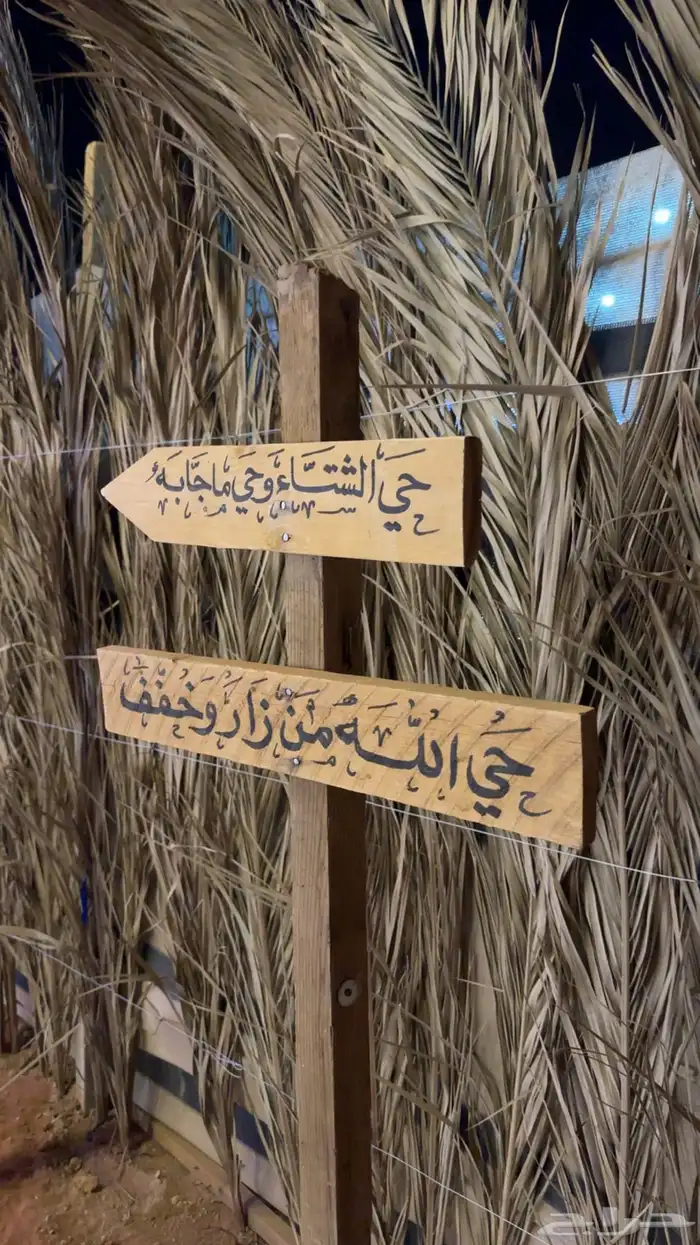 حَي الشتَّاء وَحَي مَا جَّابَهُ
حَي اللَّه مَنْ زَارَ وَخَفَّفَ
حراج